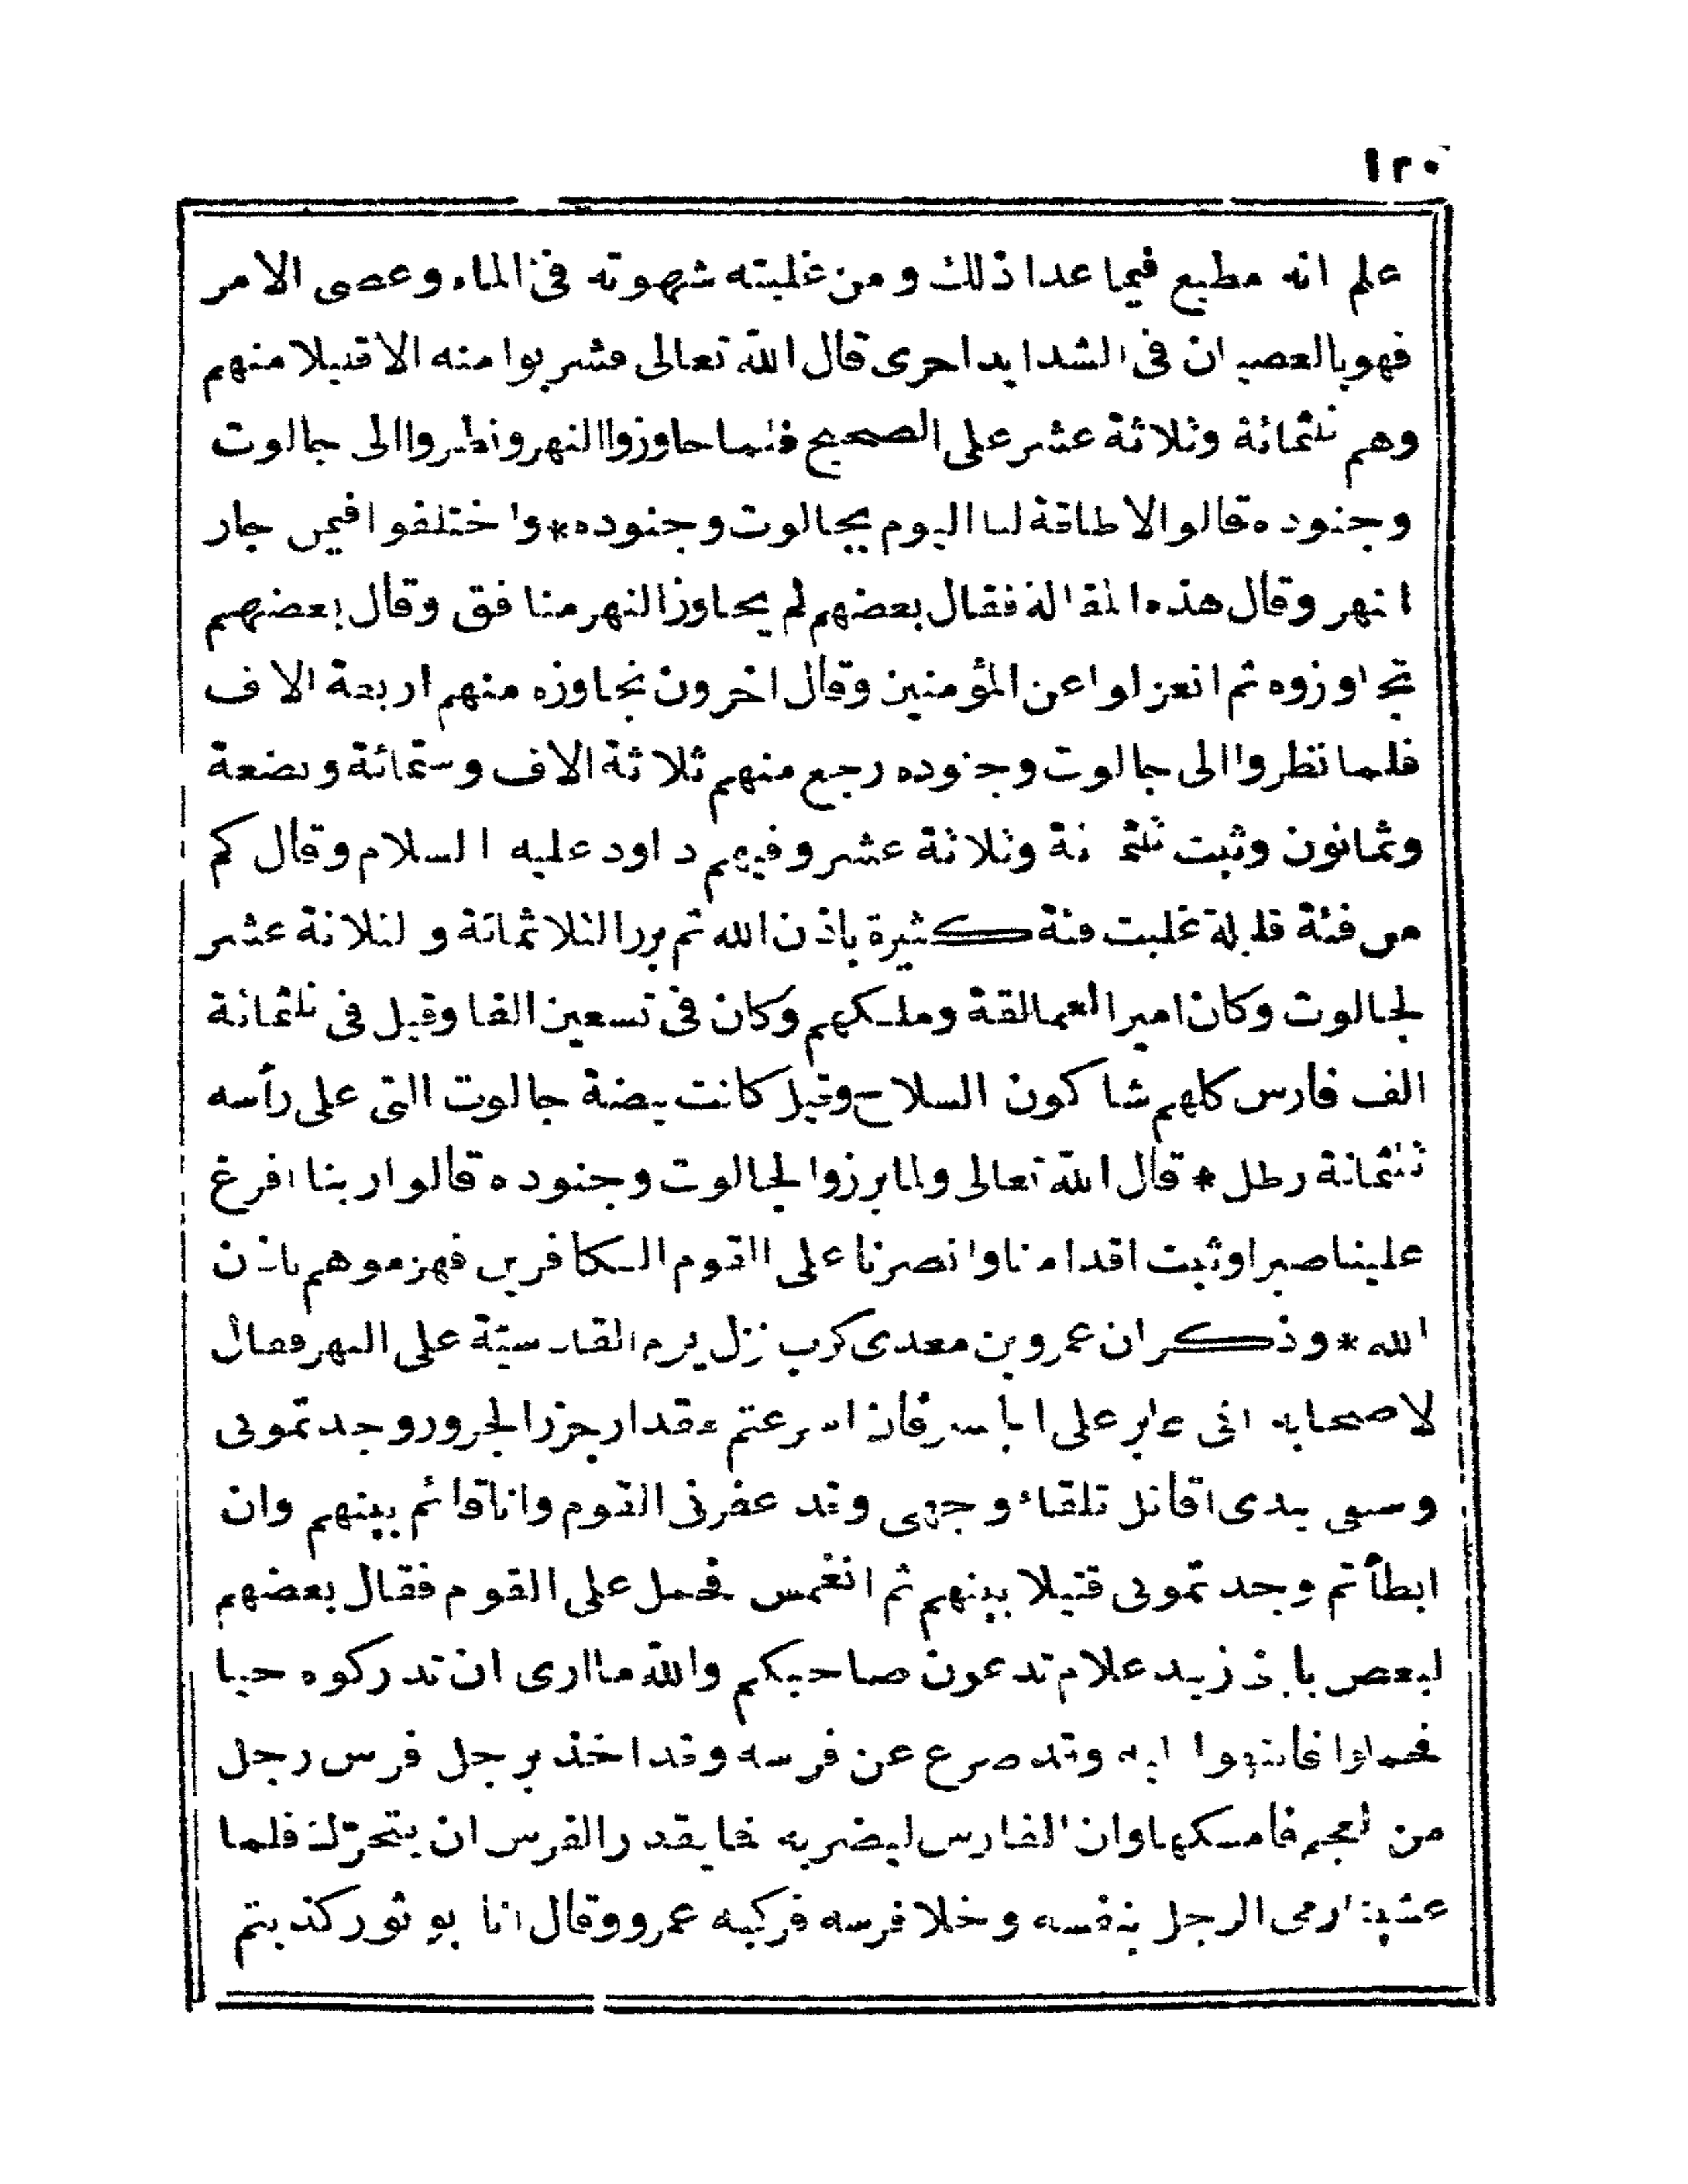 ١٢٠
علم انه مطيع فيما عدا ذلك ومن غلبته شهوته في الماء وعصى الامر
فهو بالعصيان في الشدايد احرى قال الله تعالى فشربوا منه الا قليلا منهم
وهم ثلثمائة وثلاثة عشر على الصحيح فلما جاوزوا النهر ونظروا الى جالوت
وجنوده قالوا لا طاقة لنا اليوم بجالوت وجنوده * واختلفوا فيمن جاز
النهر وقال هذه المقالة فقال بعضهم لم يجاوز النهر منافق وقال بعضهم
تجاوزوه ثم انعزلوا عن المؤمنين وقال اخرون تجاوزه منهم اربعة الاف
فلما نظروا الى جالوت وجنوده رجع منهم ثلاثة الاف وستمائة وبضعة
وثمانون وثبت ثلثمائة وثلاثة عشر وفيهم داود عليه السلام وقال كم
من فئة قليلة غلبت فئة كثيرة باذن الله ثم برز الثلاثمائة والثلاثة عشر
لجالوت وكان امير العمالقة وملكهم وكان في تسعين الفا وقيل في ثلثمائة
الف فارس كلهم شاكون السلاح وقيل كانت بيضة جالوت التى على رأسه
ثلثمائة رطل * قال الله تعالى ولما برزوا لجالوت وجنوده قالوا ربنا افرغ
علينا صبرا وثبت اقدامنا وانصرنا على القوم الكافرين فهزموهم باذن
الله * وذكر ان عمرو بن معدى كرب نزل يوم القادسيّة على النهر فقال
لاصحابه انى عابر على الجسر فان اسرعتم مقدار جزر الجزور وجدتمونى
وسيفى بيدى اقاتل تلقاء وجهى وقد عقرنى القوم وانا قائم بينهم وان
ابطأتم وجدتمونى قتيلا بينهم ثم انغمس فحمل على القوم فقال بعضهم
لبعض يا بنى زبيد علام تدعون صاحبكم والله ما ارى ان تدركوه حيا
فحملوا فانتهوا اليه وقد صرع عن فرسه وقد اخذ برجل فرس رجل
من العجم فامسكها وان الفارس ليضربه فما يقدر الفرس ان يتحرّك فلما
غشيناه رمى الرجل بنفسه وخلا فرسه فركبه عمرو وقال انا ابو ثور كذبتم